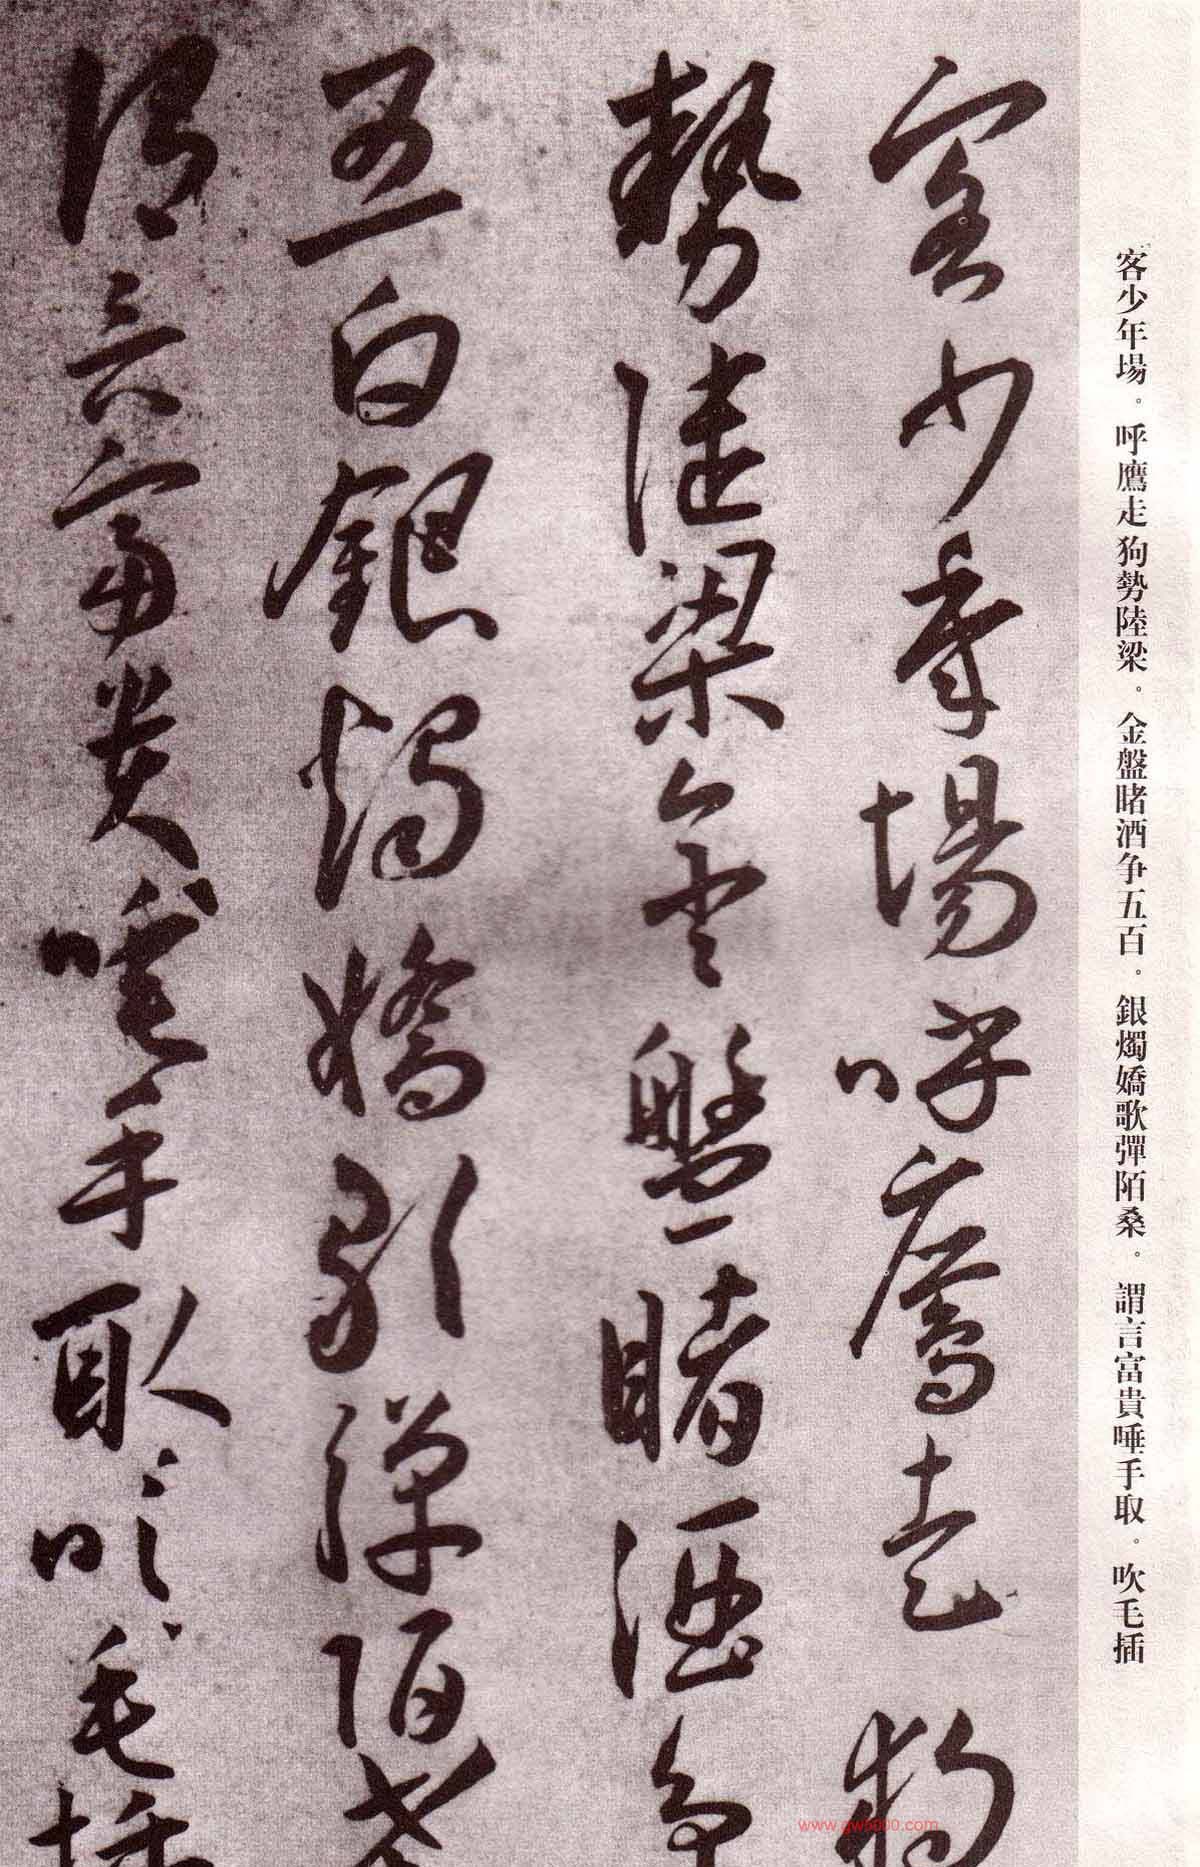 客少年場。呼鷹走狗勢陸梁。金盤睹酒争五百。銀燭嬌歌彈陌桑。謂言富貴唾手取。吹毛插
客少年場呼鷹走狗
勢陸梁金盤睹酒争
五白銀燭嬌歌彈陌桑
謂言富貴唾手取吹毛插
www.gw5000.com